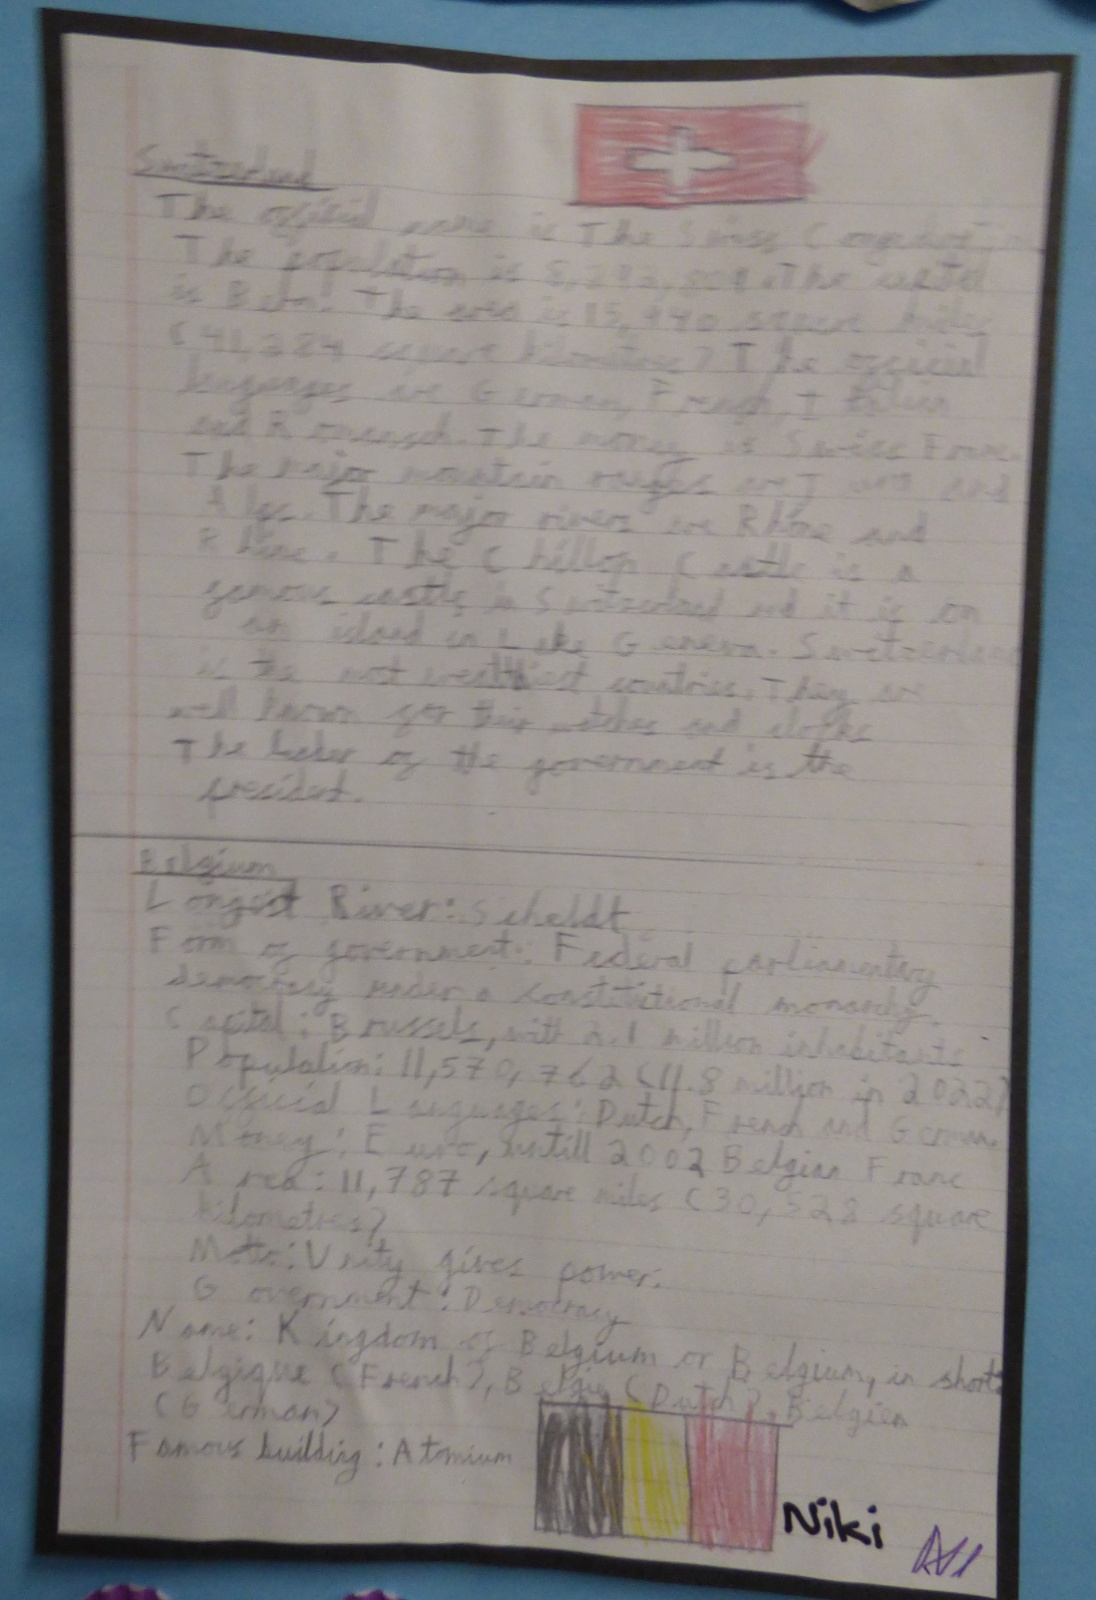 Switzerland
The official name is The Swiss
The population is 8,292,809. The capital
is Bern. The area is 15,940 square miles
(41,284 square kilometres) The official
languages are German, French, Italian
and Romansch. The money is Swiss Franc.
The major mountain ranges are Jura and
Alps. The major rivers are Rhône and
Rhine. The Chillon Castle is a
famous castle in Switzerland and it is on
an island in Lake Geneva. Switzerland
is the most wealthiest countries. They are
well known for their watches and clocks
The leader of the government is the
president.
Belgium
Longest River: Scheldt
Form of government: Federal parliamentary
democracy under a constitutional monarchy.
Capital: Brussels, with 2.1 million inhabitants
Population: 11,570,762 (11.8 million in 2022)
Official Languages: Dutch, French and German.
Money: Euro, untill 2002 Belgian Franc
Area: 11,787 square miles (30,528 square
kilometres)
Motto: Unity gives power.
Government: Democracy
Name: Kingdom of Belgium or Belgium, in short
Belgique (French), Belgie (Dutch), Belgien
(German)
Famous building: Atomium
Niki